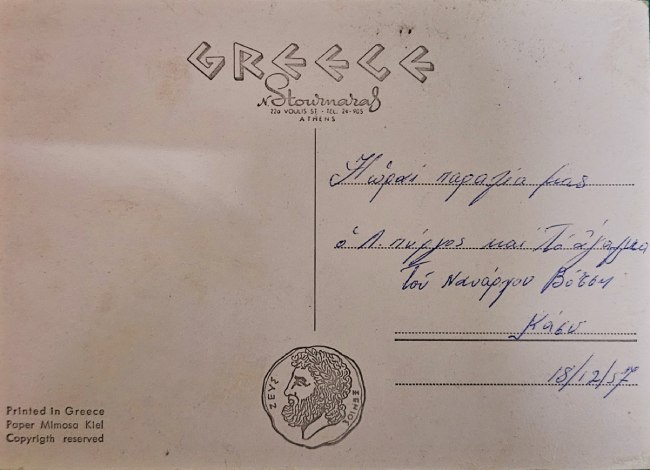 GREECE
N. Stournaras
22a VOULIS ST. - TEL. 24-905
ATHENS
Ἡ ὡραί παραλία μας
ὁ Λ. πύργος και Τό ἄγαλμα
Τοῦ Ναυάρχου Βότση
18/12/57
ΖΕΥΣ
ΞΕΝΙΟΣ
Printed in Greece
Paper Mimosa Kiel
Copyrigth reserved